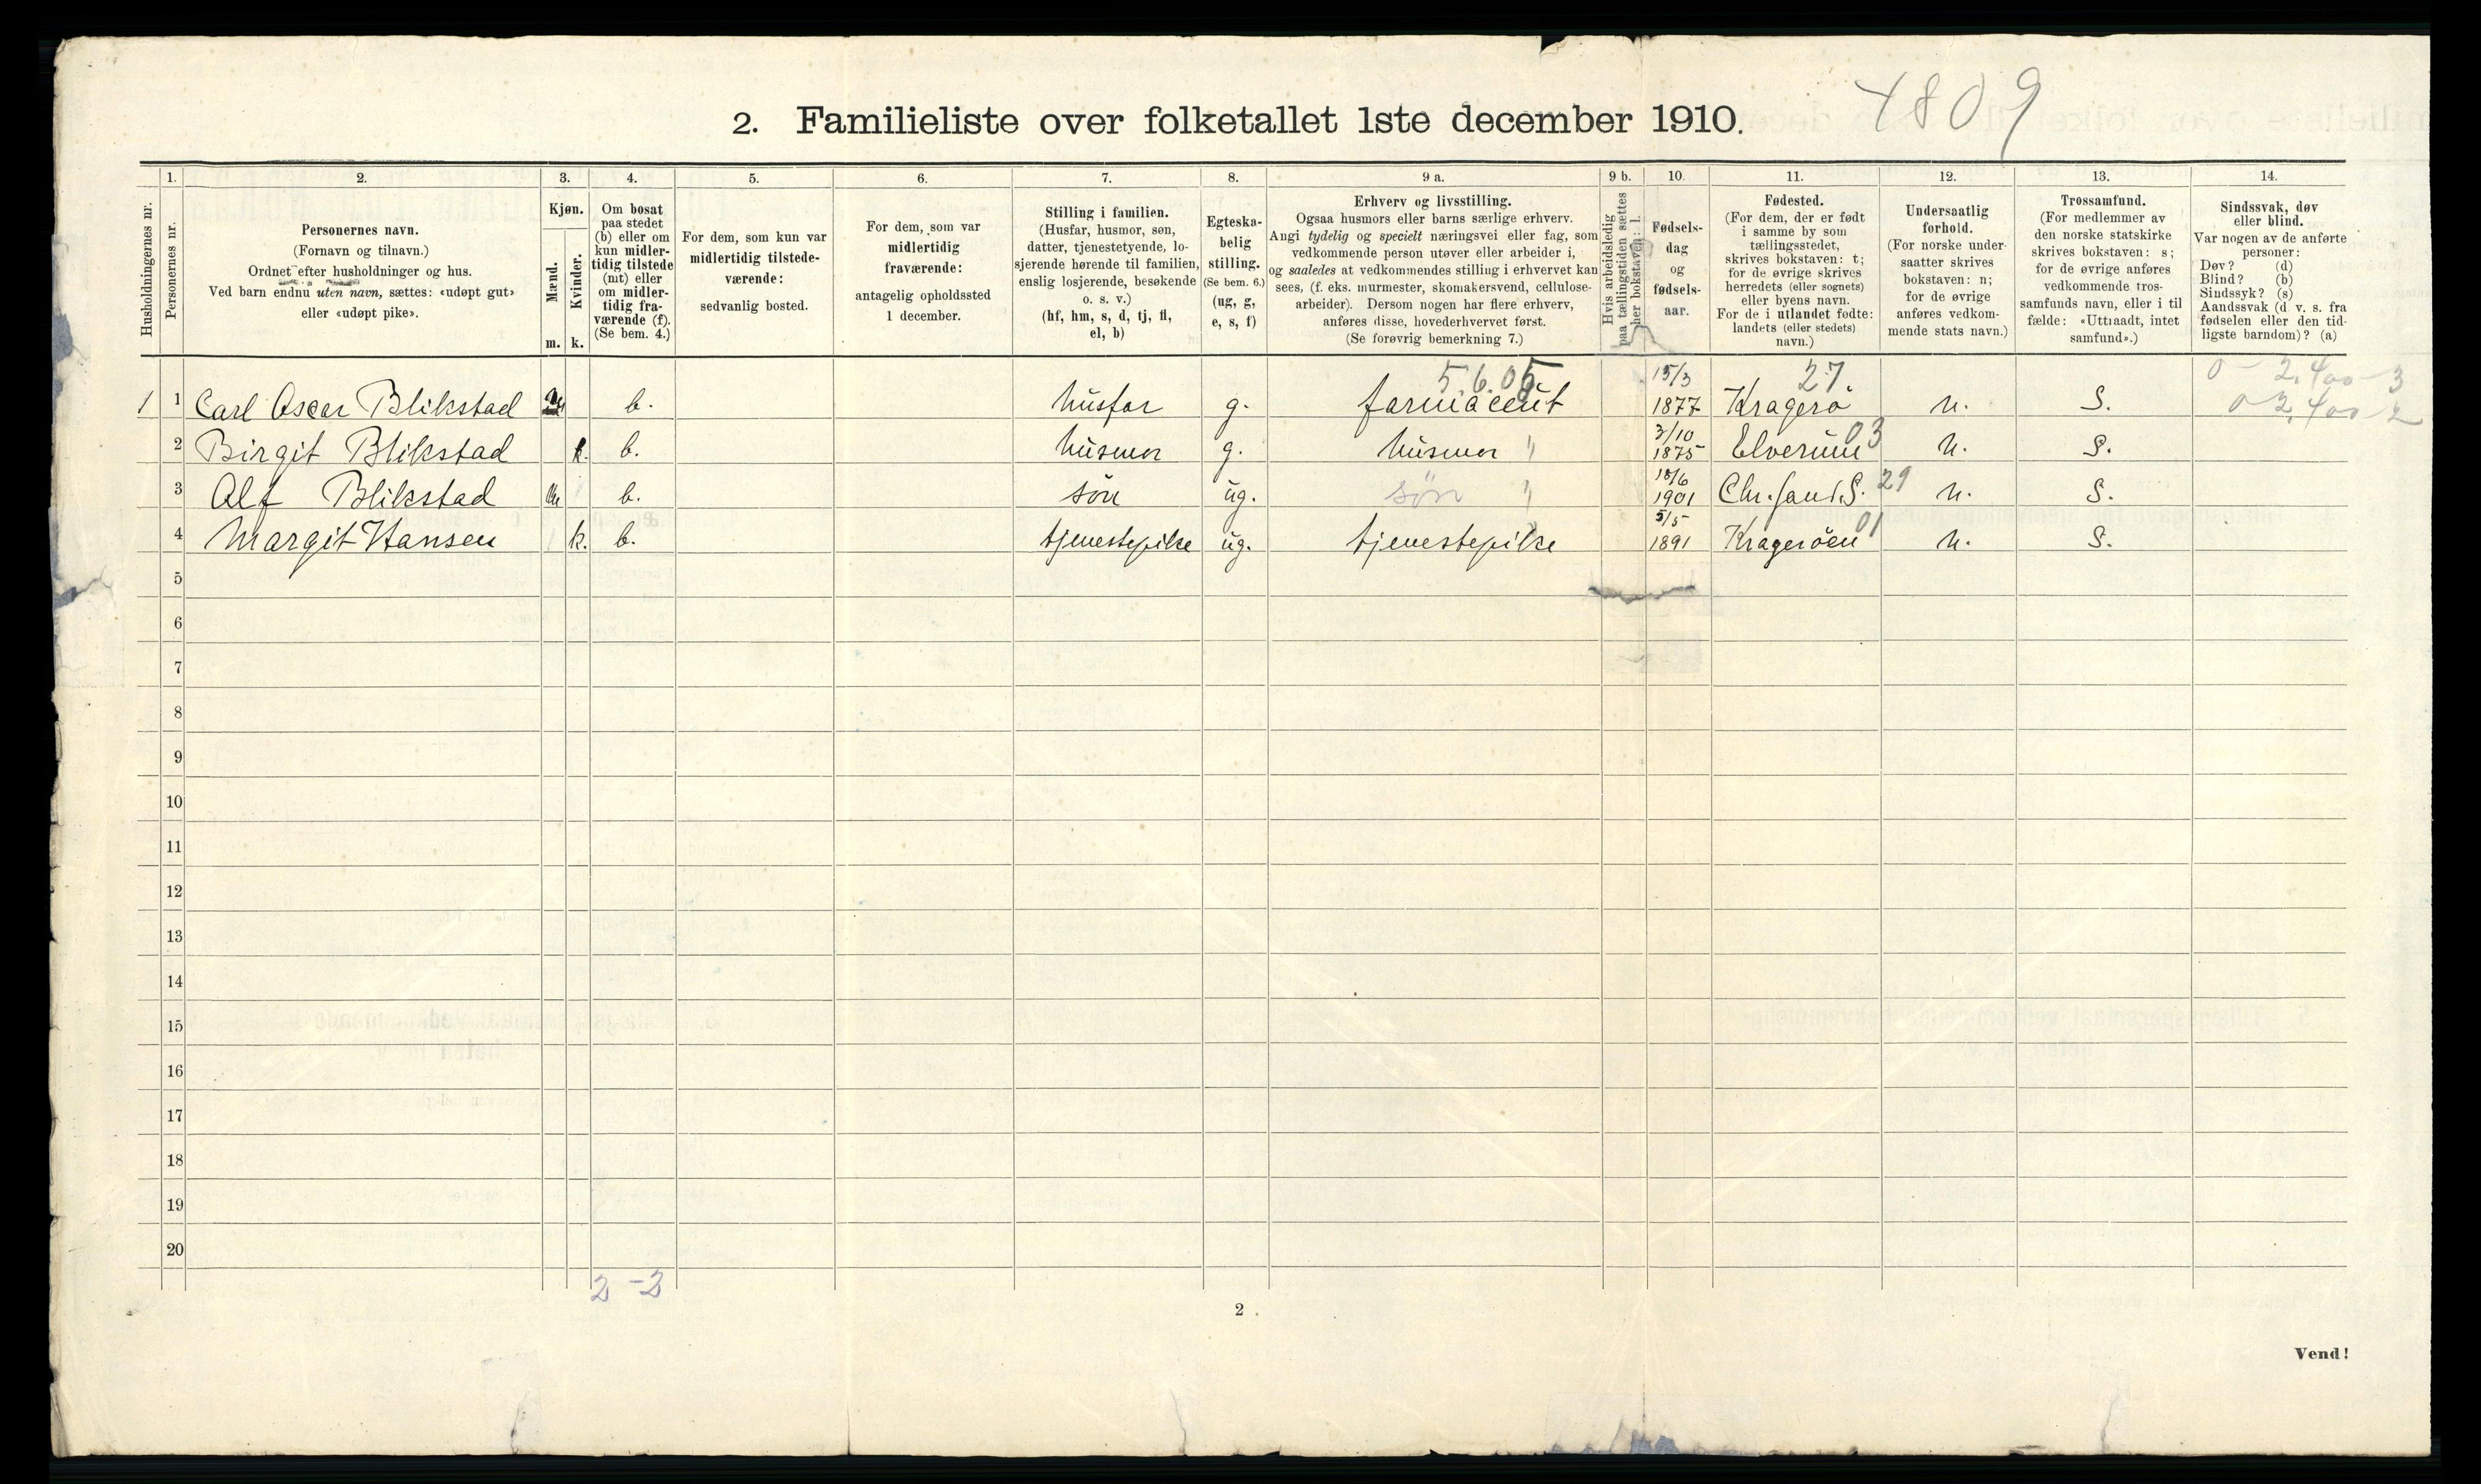 4809
2. Familieliste over folketallet 1ste december 1910.
Husholdningernes nr.
1.
Personernes nr.
2.
Personernes navn.
(Fornavn og tilnavn.)
Ordnet efter husholdninger og hus.
Ved barn endnu uten navn, sættes: «udøpt gut»
eller «udøpt pike».
3.
Kjøn.
Mænd.
Kvinder.
m. k.
4.
Om bosat
paa stedet
(b) eller om
kun midler-
tidig tilstede
(mt) eller
om midler-
tidig fra-
værende (f).
(Se bem. 4.)
5.
For dem, som kun var
midlertidig tilstede-
værende:
sedvanlig bosted.
6.
For dem, som var
midlertidig
fraværende:
antagelig opholdssted
1 december.
7.
Stilling i familien.
(Husfar, husmor, søn,
datter, tjenestetyende, lo-
sjerende hørende til familien,
enslig losjerende, besøkende
o. s. v.)
(hf, hm, s, d, tj, fl,
el, b)
8.
Egteska-
belig
stilling.
(Se bem. 6.)
(ug, g,
e, s, f)
9 a.
Erhverv og livsstilling.
Ogsaa husmors eller barns særlige erhverv.
Angi tydelig og specielt næringsvei eller fag, som
vedkommende person utøver eller arbeider i,
og saaledes at vedkommendes stilling i erhvervet kan
sees, (f. eks. murmester, skomakersvend, cellulose-
arbeider). Dersom nogen har flere erhverv,
anføres disse, hovederhvervet først.
(Se forøvrig bemerkning 7.)
9 b.
Hvis arbeidsledig
paa tællingstiden sættes
her bokstaven: l.
10.
Fødsels-
dag
og
fødsels-
aar.
11.
Fødested.
(For dem, der er født
i samme by som
tællingsstedet,
skrives bokstaven: t;
for de øvrige skrives
herredets (eller sognets)
eller byens navn.
For de i utlandet fødte:
landets (eller stedets)
navn.)
12.
Undersaatlig
forhold.
(For norske under-
saatter skrives
bokstaven: n;
for de øvrige
anføres vedkom-
mende stats navn.)
13.
Trossamfund.
(For medlemmer av
den norske statskirke
skrives bokstaven: s;
for de øvrige anføres
vedkommende tros-
samfunds navn, eller i til
fælde: «Uttraadt, intet
samfund».)
14.
Sindssvak, døv
eller blind.
Var nogen av de anførte
personer:
Døv? (d)
Blind? (b)
Sindssyk? (s)
Aandssvak (d. v. s. fra
fødselen eller den tid-
ligste barndom)? (a)
5.6.05 15/3 27. 0 - 2.400 - 3
1 1 Carl Oscar Blikstad m b. husfar g. farmaceut 1877 Kragerø n. S. 0 2.400 - 2
3/10 03
2 Birgit Blikstad k. b. husmor g. husmor " 1875 Elverum n. S.
18/6 29
3 Alf Blikstad m b. søn ug. søn " 1901 Chr.sand.S. n. S.
5/5 01
4 Margit Hansen k. b. tjenestepike ug. tjenestepike 1891 Kragerøen n. S.
5
6
7
8
9
10
11
12
13
14
15
16
17
18
19
20
2 - 2
2
Vend!